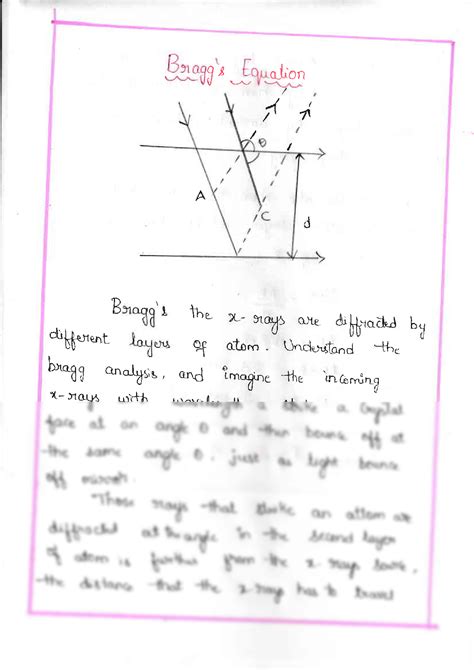 Bragg's Equation
θ
A
C
d
Bragg's the x-rays are diffracted by
different layers of atom. Understand the
bragg analysis, and imagine the incoming
x-rays with wavelength a strike a crystal
face at an angle θ and then bounce off at
the same angle θ, just as light bounce
off mirror.
Those rays that strike an attom are
diffracted at the angle in the second layer
of atom is further from the x-rays
the distance that the x-rays has to travel